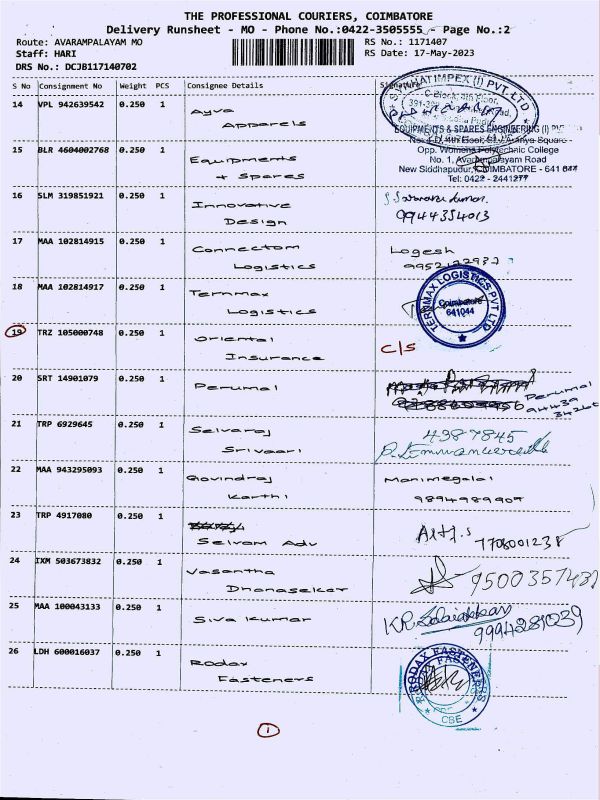 THE PROFESSIONAL COURIERS, COIMBATORE
Delivery Runsheet - MO - Phone No.:0422-3505555 - Page No.:2
Route: AVARAMPALAYAM MO RS No.: 1171407
Staff: HARI RS Date: 17-May-2023
DRS No.: DCJB117140702
S No Consignment No Weight PCS Consignee Details
14 VPL 942639542 0.250 1 Ayva
Apparels
EQUIPMENTS & SPARES ENGINEERING (I) PVT
15 BLR 4604002768 0.250 1 Equipments
& Spares
Opp. Womens Polytechnic College
No. 1, Avarampalayam Road
New Siddhapudur, COIMBATORE - 641
Tel: 0422 - 2441277
16 SLM 319851921 0.250 1 Innovative
Design
9944354013
17 MAA 102814915 0.250 1 Connectom Logesh
Logistics
18 MAA 102814917 0.250 1 Ternmax
Logistics
TERNMAX LOGISTICS PVT LTD
Coimbatore
641044
19 TRZ 105000748 0.250 1 Oriental C/S
Insurance
20 SRT 14901079 0.250 1 Perumal Perumal
21 TRP 6929645 0.250 1 Selvaraj 4387845
Srivaari
22 MAA 943295093 0.250 1 Govindraj Manimegalai
Karthi 9894989909
23 TRP 4917080 0.250 1
Selvam Adv 7708001238
24 IXM 503673832 0.250 1 Vasantha
Dhanasekar
25 MAA 100043133 0.250 1 Siva Kumar
9994281039
26 LDH 600016037 0.250 1 Rodax
Fasteners
RODAX FASTENERS
CBE
1